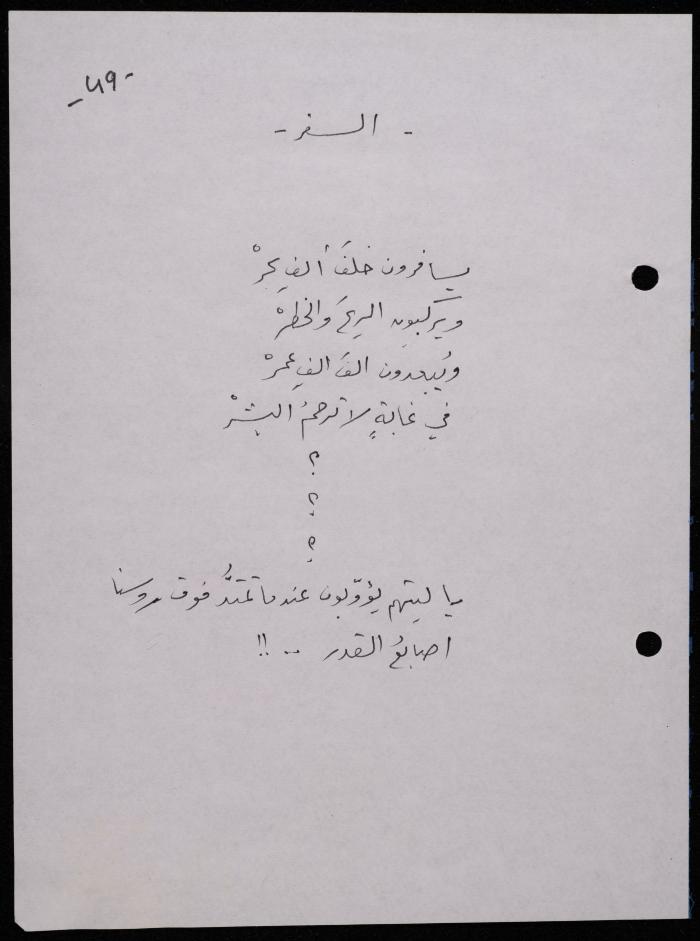 -49-
- السفر -
يسافرون خلفَ ألفِ بحرْ
ويركبون الريحَ والخطرْ
ويُبعدون الفَ الفِ عمرْ
في غابةٍ لا ترحمُ البشرْ
؟
؟
؟
يا ليتهم يؤوّبون عندما تمتدُّ فوق روسنا
اصابعُ القدر .. !!